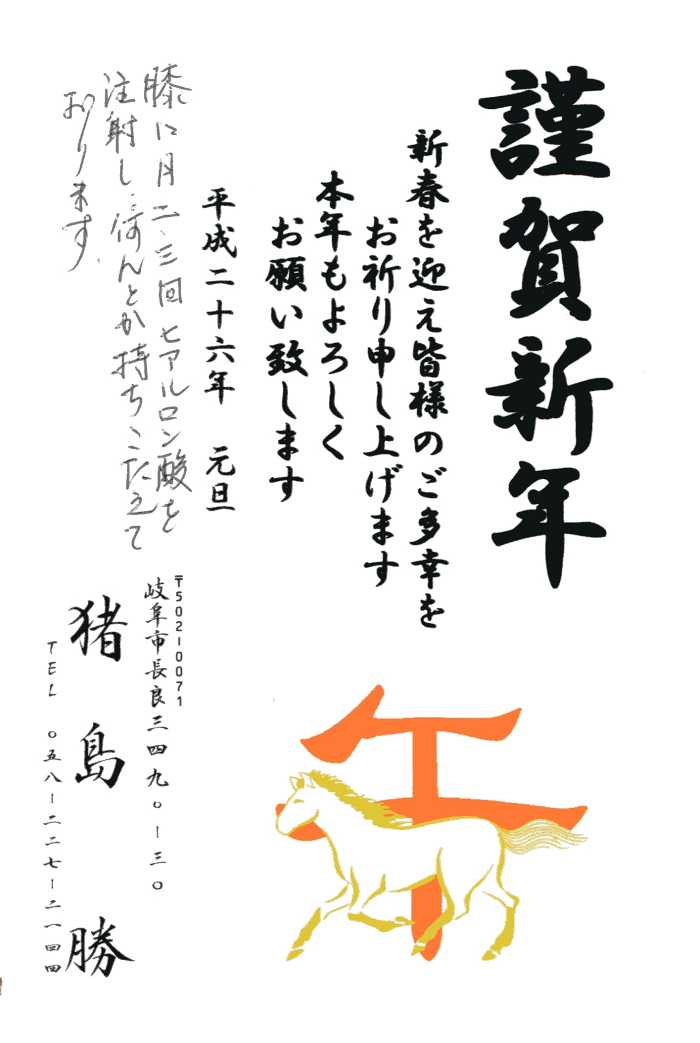 謹賀新年
新春を迎え皆様のご多幸を
お祈り申し上げます
本年もよろしく
お願い致します
平成二十六年 元旦
膝に月二、三回ヒアルロン酸を
注射し、何んとか持ちこたえて
おります。
〒502-0071
岐阜市長良三四九〇ー三〇
猪島勝
TEL 〇五八ー二二七ー二一四四
午